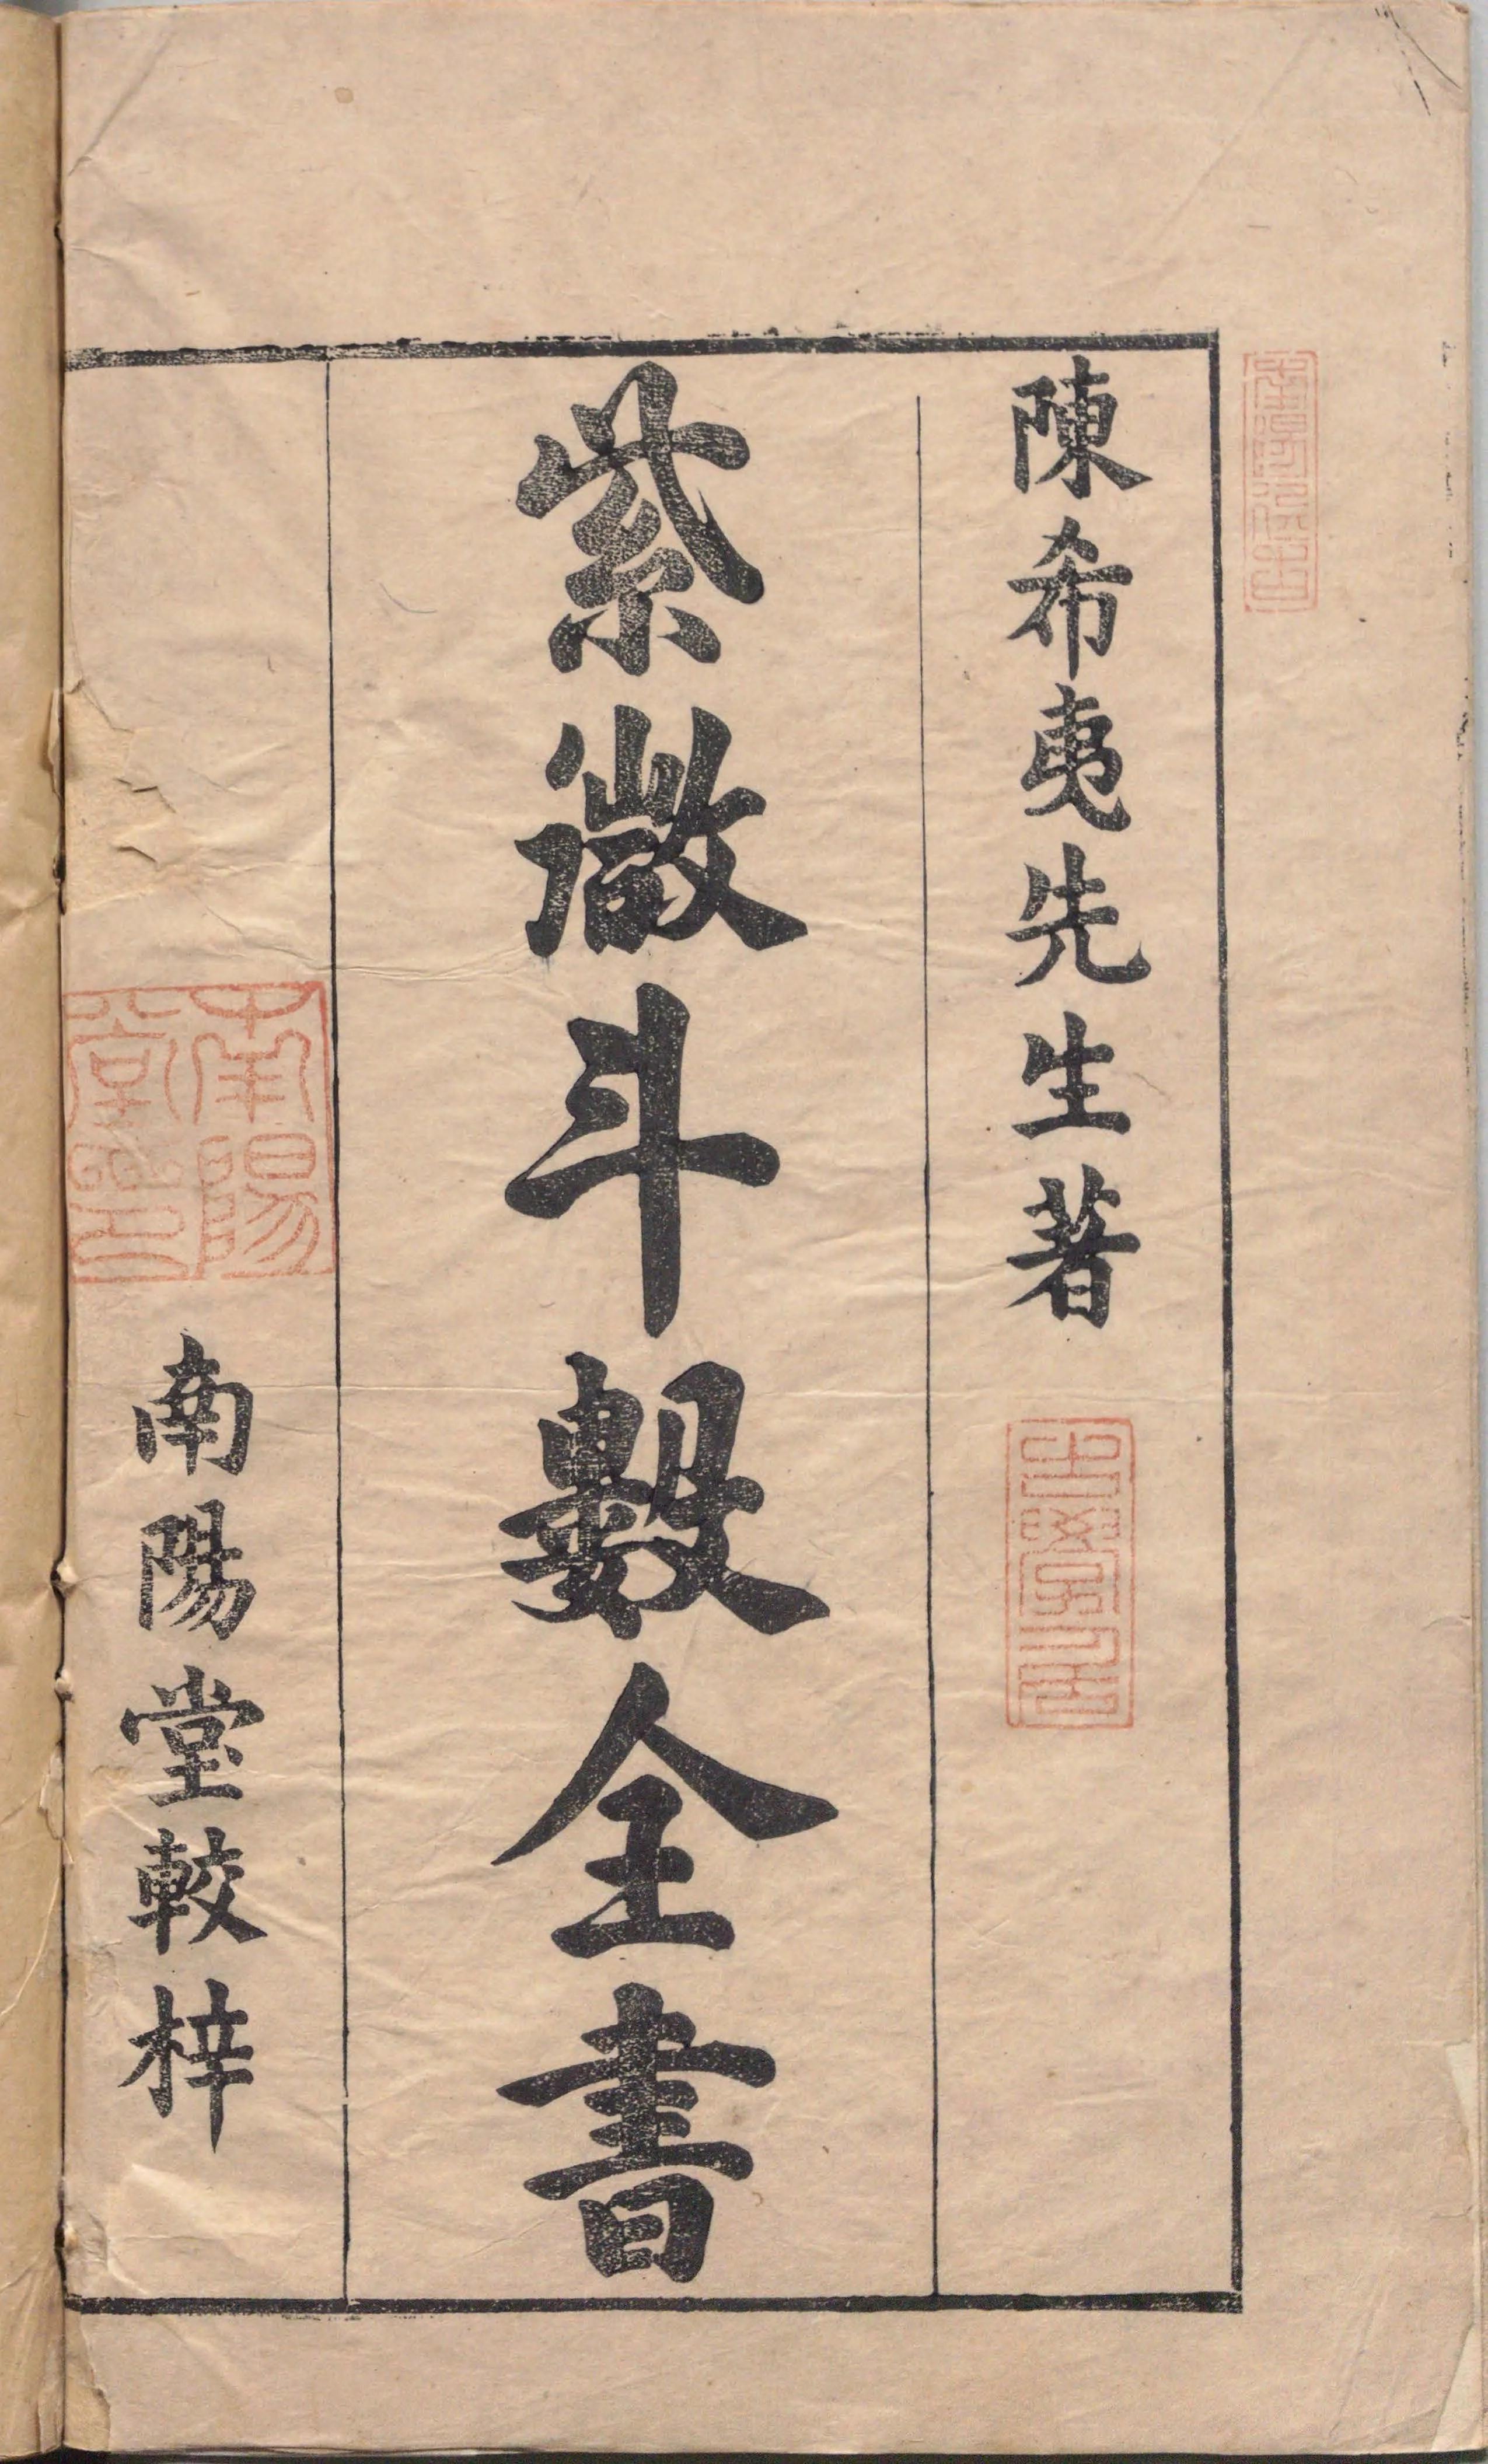 陳希夷先生著
紫微斗數全書
南陽堂較梓
南陽
堂印